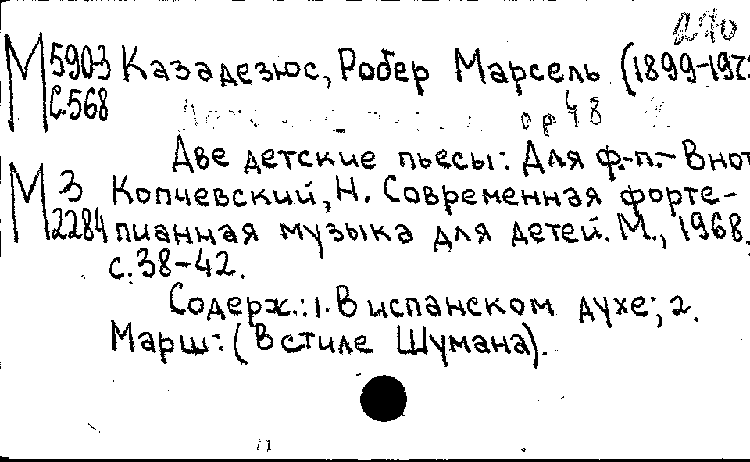 210
М 5903 Казадезюс, Робер Марсель (1899-1972
С.568
ор 48
Две детские пьесы: Для ф.-п.- В нот
М 3 Копчевский, Н. Современная форте-
2284 пианная музыка для детей. М., 1968,
с. 38-42.
Содерж.: 1. В испанском духе; 2.
Марш: (В стиле Шумана).